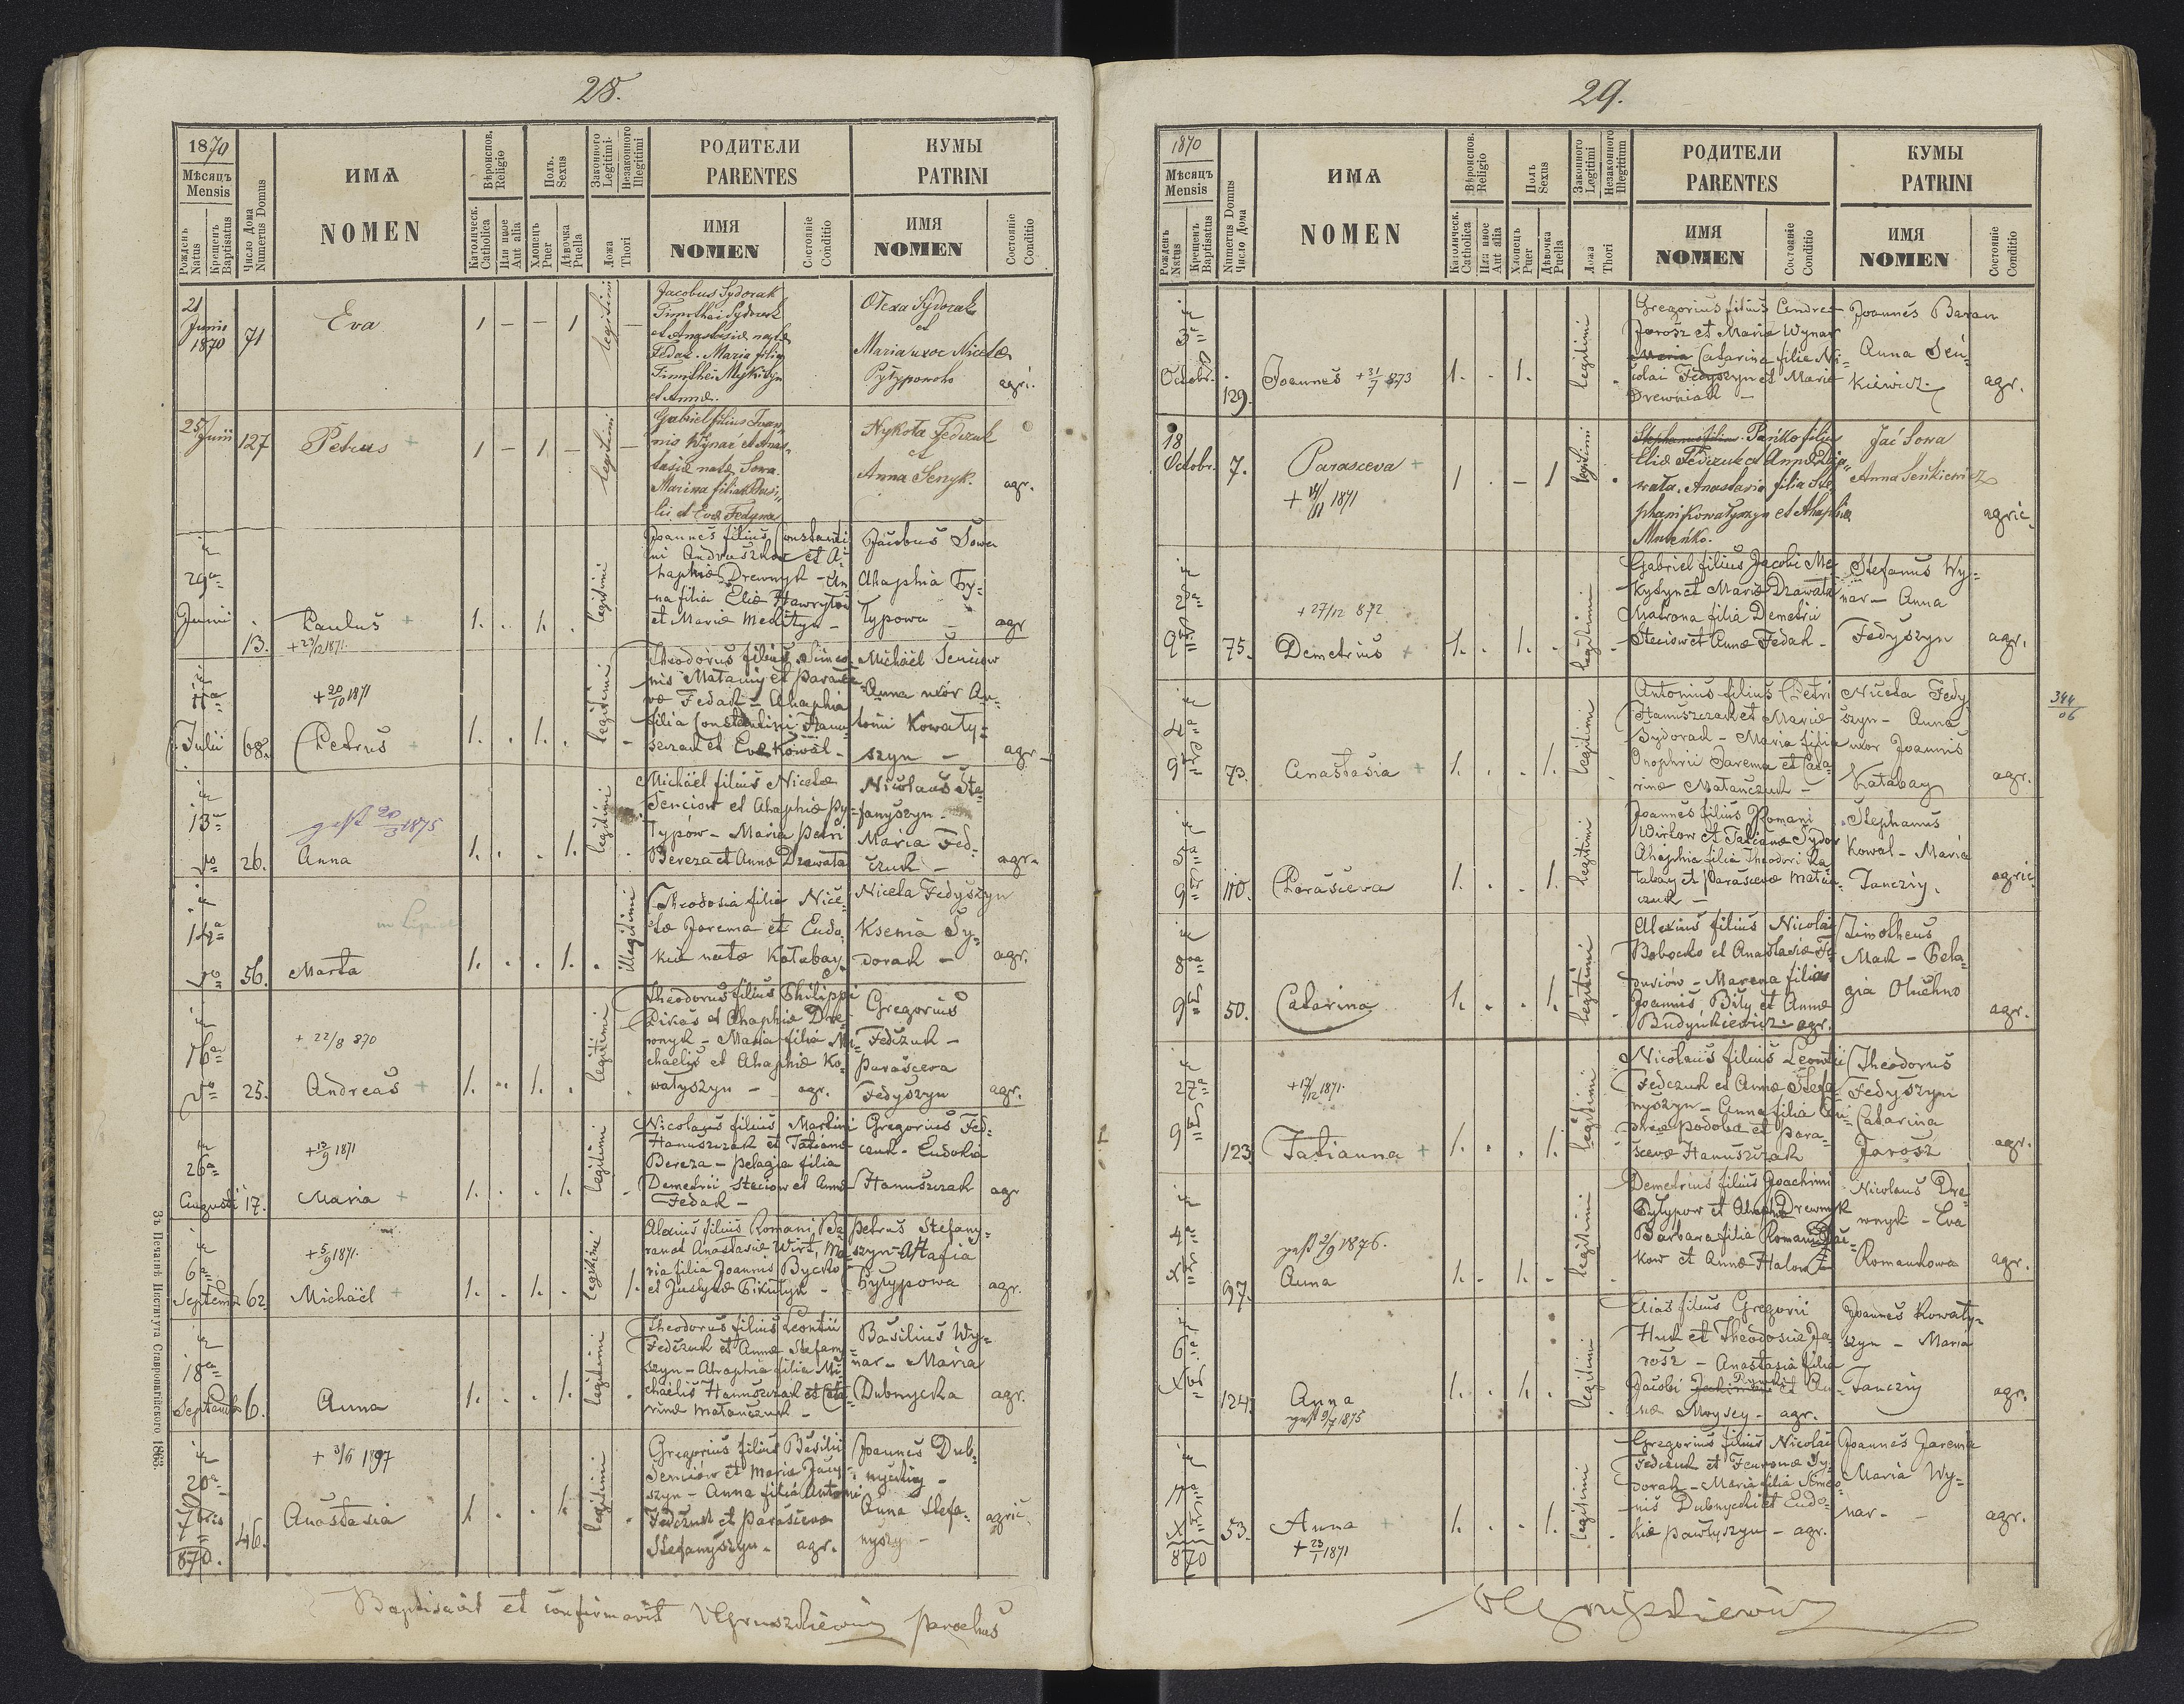 28.
1870
Мѣсяцъ
Mensis
Рожденъ
Natus
Крещенъ
Baptisatus
Число Дома
Numerus Domus
ИМѦ
NOMEN
Вѣроиспов.
Religio
Католическ.
Catholica
Или иное
Aut alia
Полъ.
Sexus
Хлопецъ
Puer
Дѣвочка
Puella
Законного
Legitimi.
Незаконного
Illegitimi
Ложа
Thori
РОДИТЕЛИ
PARENTES
ИМЯ
NOMEN
Состояніе
Conditio
КУМЫ
PATRINI
ИМЯ
NOMEN
Состояніе
Conditio
21
Junii
1870
71
Eva
1 - - 1
legitimi
Jacobus Sydorak
Timothei Sydorak
et Anastasiæ natæ
Fedak. Maria filia
Timothei Mykityn
et Annæ.
Olexa Sydorak
et
Maria uxor Nicetæ
Pyłypowcho
agri.
25 Junii
127
Petrus +
1 - 1 -
legitimi
Gabriel filius Joan-
nis Wynar et Anas-
tasiæ natæ Sowa.
Marina filia Basi-
lii et Evæ Fedyna
Nykoła Fedczuk
et
Anna Senyk.
agr.
29a
Junii
13.
Paulus +
+ 23/12 1871.
1. . 1. .
legitimi
Joannes filius Constanti
ni Andruszkow et A-
haphiæ Drewnyk - An
na filia Eliæ Hawryłow
et Mariæ Medityn -
Jacobus Sowa
Ahaphia Py-
łypowa -
agr
11a
Julii
68.
+ 20/10 1871
Petrus +
1. . 1. .
legitimi
Theodorus filius Simeo-
nis Matawij et Parasce-
væ Fedak - Ahaphia
filia Constantini Hanu
szczak et Evæ Kowal -
Michaël Senciow
Anna uxor An-
tonii Kowały-
szyn -
agr -
13a
26.
Anna
1. . . 1.
legitimi
Michaël filius Nicetæ
Senciow et Ahaphiæ Py-
łypów - Maria Petri
Bereza et Annæ Dzawata
Nicolaus Ste-
fanyszyn -
Maria Fed-
czuk -
agr.
14a
56.
Marta
1. . . 1. .
illegitimi
Theodosia filia Nice-
tæ Jarema et Eudo-
kiæ natæ Katabay.
Niceta Fedyszyn
Ksenia Sy-
dorak -
agr.
16a
25.
+ 22/8 870
Andreas +
1. . 1. .
legitimi
Theodorus filius Philippi
Dikas et Ahaphiæ Dre-
wnyk - Maria filia Mi-
chaelis et Ahaphiæ Ko-
wałyszyn - agr.
Gregorius
Fedczuk -
Parasceva
Fedyszyn
agr.
26a
Augusti
17.
+ 13/9 1871
Maria +
1. . . 1.
legitimi
Nicolaus filius Martini
Hanuszczak et Tatianæ
Bereza - Pelagia filia
Demetrii Steciow et Annæ
Fedak -
Gregorius Fed-
czuk - Eudokia
Hanuszczak
agr
6a
Septembr
62.
+ 5/9 1871.
Michaël +
1. . 1. .
legitimi
Alexius filius Romani Ba-
ran et Anastasiæ Wirt, Ma-
ria filia Joannis Bycko
et Justynæ Pikutyk -
Petrus Stefany-
szyn - Astafia
Pyłypowa
agr.
18a
Septembr
6.
Anna
1. . . 1.
legitimi
Theodorus filius Leontii
Fedczuk et Annæ Stefany
szyn - Ahaphia filia Mi-
chaëlis Hanuszczak et Cata-
rinæ Matanczuk -
Basilius Wy-
nar - Maria
Dubnycka
agr.
20a
7bris
870.
46.
+ 3/6 1897
Anastasia
1. . . 1.
legitimi
Gregorius filius Basilii
Senciów et Mariæ Jacy-
szyn - Anna filia Antoni
Fedczuk et Parascevæ
Stefanyszyn - agr.
Joannes Dub-
nyckiy -
Anna Stefa-
nyszyn -
agric.
Baptisavit et confirmavit Gruszkiewicz parochus
Зъ Печатнѣ Института Ставропигійского 1863.
29.
1870
Мѣсяцъ
Mensis
Рожденъ
Natus
Крещенъ
Baptisatus
Numerus Domus
Число Дома
ИМѦ
NOMEN
Вѣроиспов.
Religio
Католическ.
Catholica
Или иное
Aut alia
Полъ
Sexus
Хлопецъ
Puer
Дѣвочка
Puella
Законного
Legitimi
Незаконного
Illegitium
Ложа
Thori
РОДИТЕЛИ
PARENTES
ИМЯ
NOMEN
Состояніе
Conditio
КУМЫ
PATRINI
ИМЯ
NOMEN
Состояніе
Conditio
3a
Octobr.
129.
Joannes + 31/7 873
1. . 1.
legitimi
Gregorius filius Andreæ
Jarosz et Mariæ Wynar
Maria Catarina filia Ni-
colai Fedyszyn et Mariæ
Drewniak -
Joannes Baran
Anna Sen-
kiewicz -
agr.
18
Octobr.
7.
Parasceva +
+ 14/11 1871
1 . - 1
legitimi
Stephanus filius Pańko filius
Eliæ Fedczuk et Annæ Dza-
wała. Anastasia filia Ste
phani Kowałyszyn et Ahaphiæ
Mułenko.
Jać Sowa
Anna Senkiewicz
agric.
2a
9br
75.
+ 27/12 872
Demetrius +
1. . 1. .
legitimi
Gabriel filius Jacobi My
kytyn et Mariæ Dzawata
Matrona filia Demetrii
Steciow et Annæ Fedak -
Stefanus Wy-
nar - Anna
Fedyszyn
agr.
4a
9br
73.
Anastasia +
1. . . 1.
legitimi
Antonius filius Petri
Hanuszczak et Mariæ
Sydorak - Maria filia
Onophrii Jarema et Cata-
rinæ Matanczuk -
Niceta Fedy
szyn - Anna
uxor Joannis
Katabay
agr.
344/06
5a
9br
110.
Parasceva
1. . . 1.
legitimi
Joannes filius Romani
Wirłow et Tatianæ Sydor
Ahaphia filia Theodori Ka
tabay et Parascevæ Matan-
czuk -
Stephanus
Kowal - Maria
Jancziy.
agric.
8a
9br
50.
Catarina
1. . . 1.
legitimi
Alexius filius Nicolai
Bobocko et Anastasiæ Fe
duniów - Marena filia
Joannis Biły et Annæ
Budynkiewicz - agr.
Timotheus
Mak - Pela-
gia Oluchno
agr.
27a
9br
123
+ 17/12 1871.
Tatianna +
1. . . 1.
legitimi
Nicolaus filius Leontii
Fedczuk et Annæ Stefa
nyszyn - Anna filia An-
dreæ Podoba et Para-
scevæ Hanuszczak
Theodorus
Fedyszyn
Catarina
Jarosz
agr.
4a
Xbr
97.
2/9 1876.
Anna
1. . 1. .
legitimi
Demetrius filius Joachimi
Pyłypow et Ahaphiæ Drewnyk
Barbara filia Romani
kow et Annæ Halow
Nicolaus Dre-
wnyk - Eva
Romankowa
agr.
6a
Xbr
124.
Anna
9/7 1875
1. . 1. .
legitimi
Elias filius Gregorii
Huk et Theodosiæ Ja-
rosz - Anastasia filia
Jacobi et An-
næ Moysey - agr.
Joannes Kowały-
szyn - Maria
Janczij
agr.
Xbr
870
53.
Anna +
+ 23/1 1871
1. . . 1.
legitimi
Gregorius filius Nicolai
Fedczuk et Fevronæ Sy-
dorak - Maria filia Simeo-
nis Dubnycki et Eudo-
kiæ Pawłyszyn - agr.
Joannes Jarema
Maria Wy-
nar. -
agr.
Gruszkiewicz